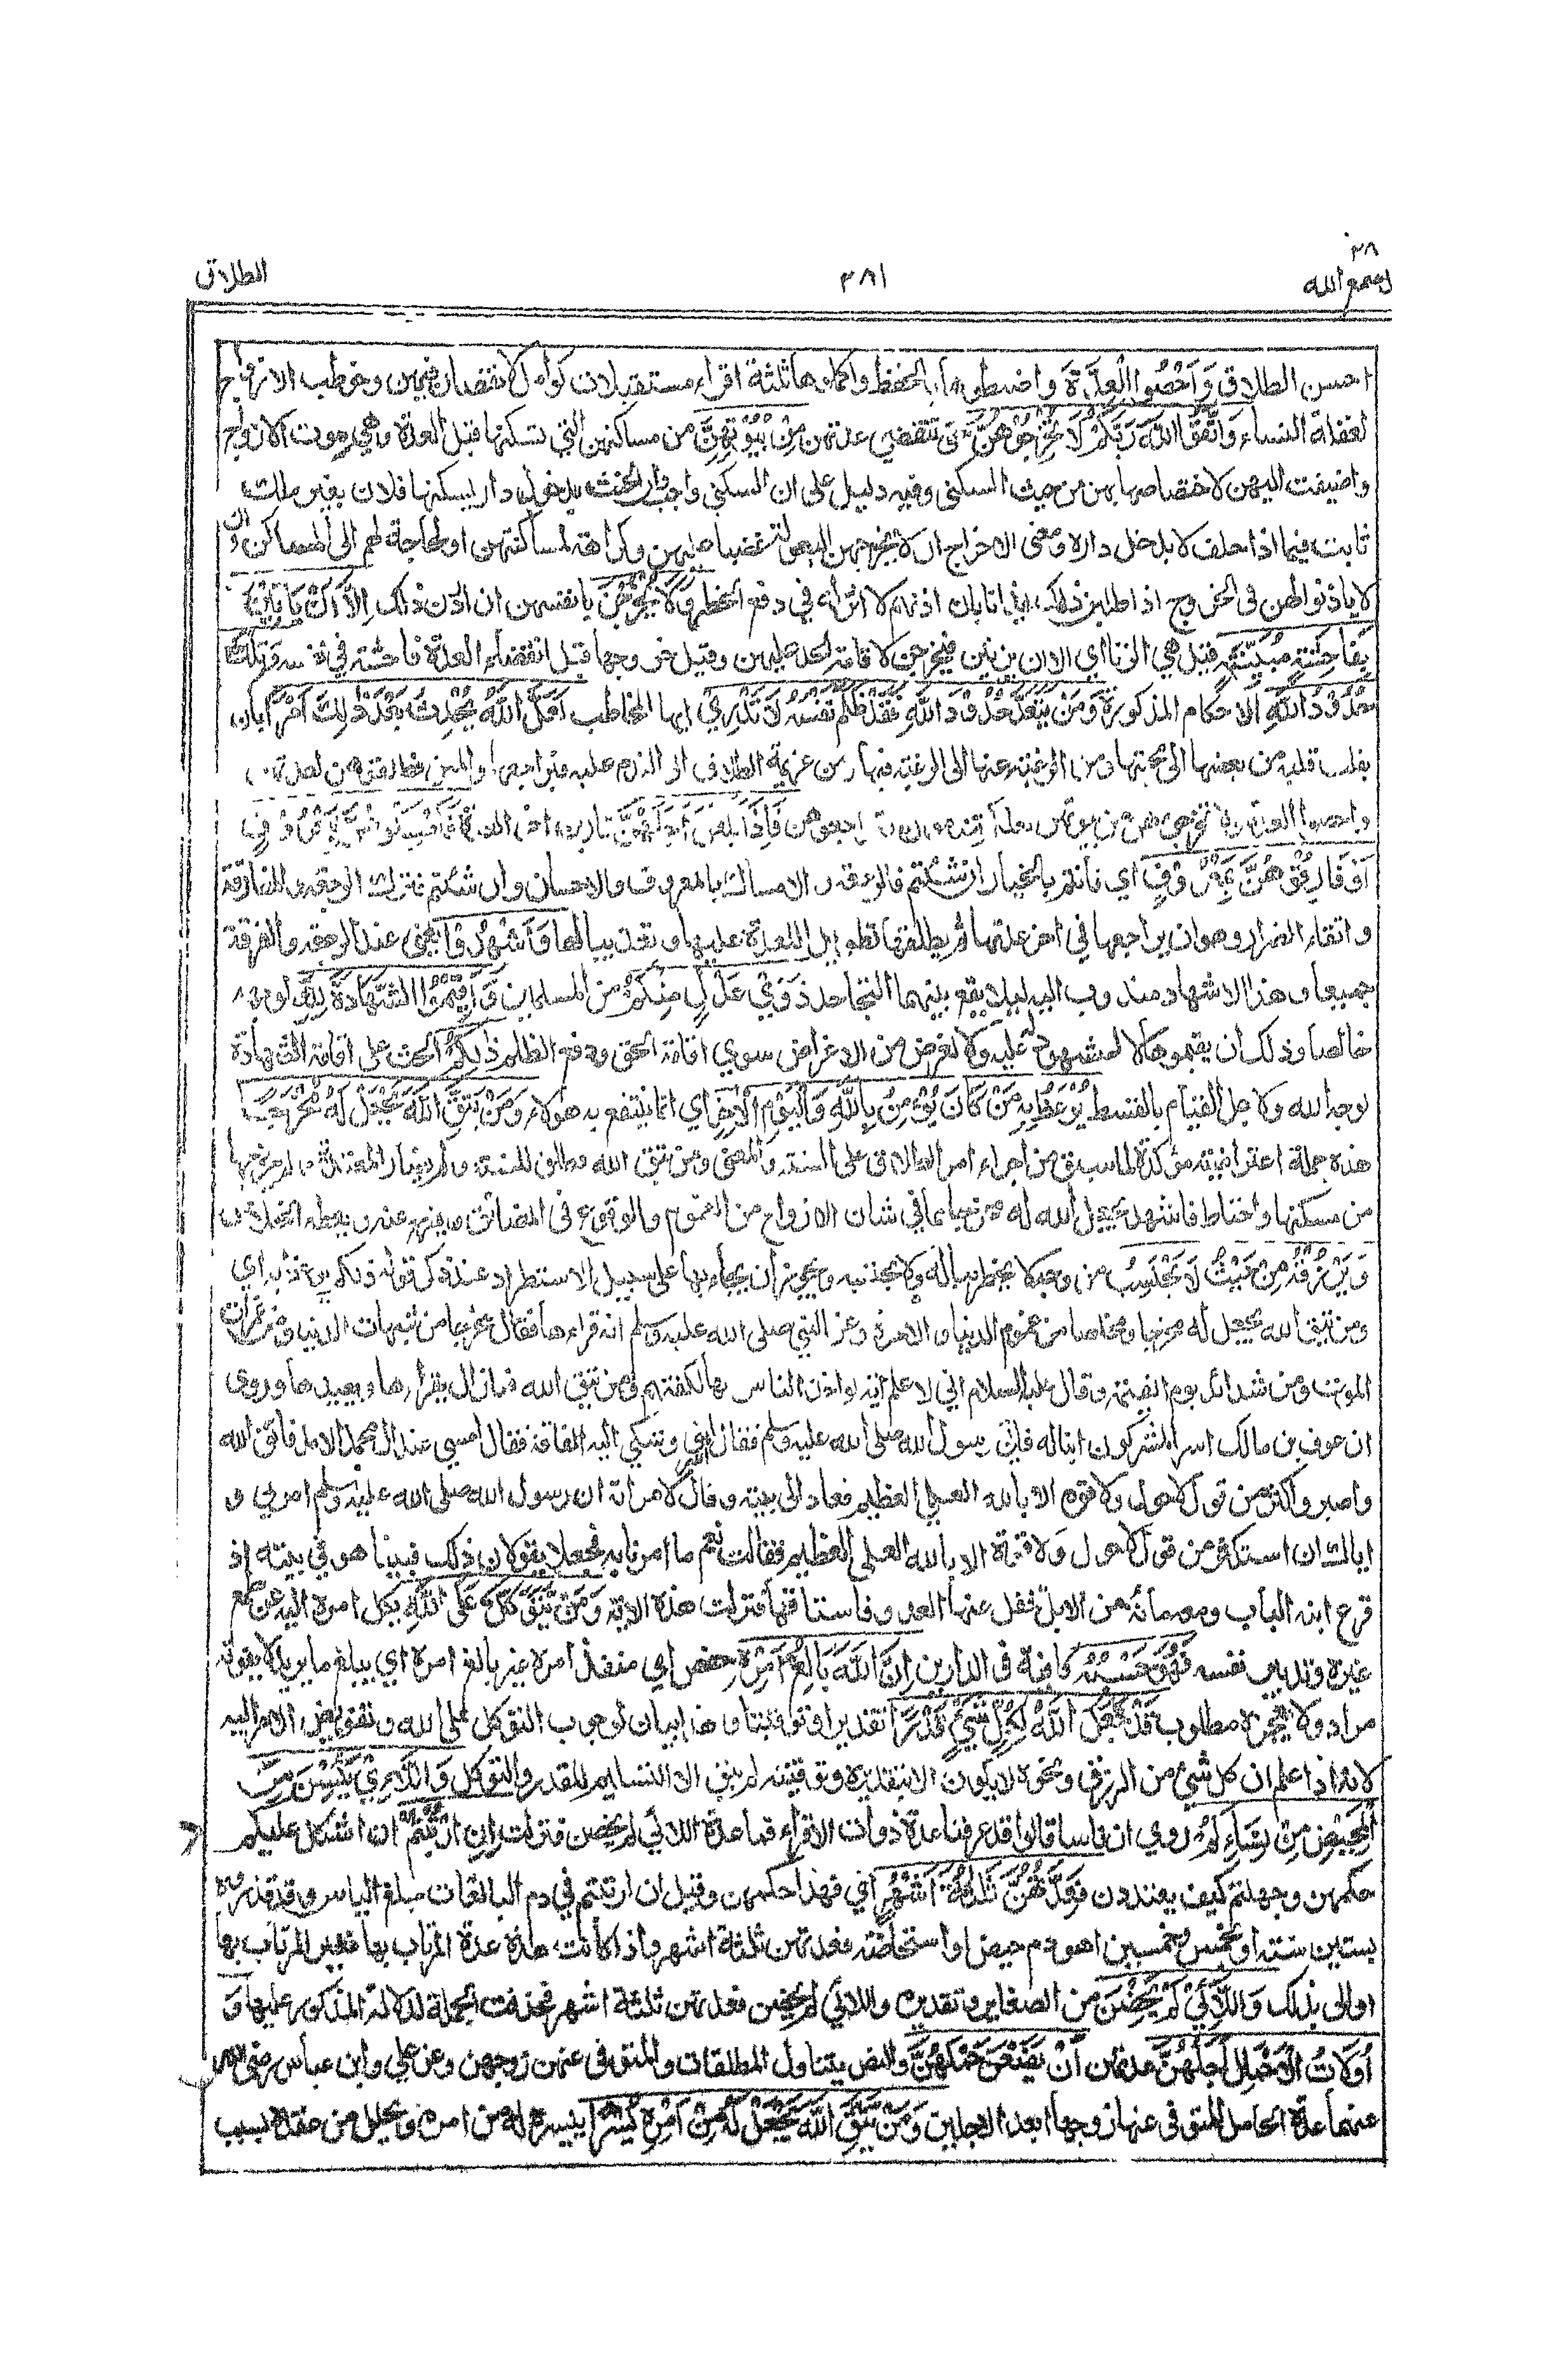 ٢٨
قد سمع الله
٣٨١
الطلاق
احسن الطلاق وَاَحْصُوا الْعِدَّةَ واضبطوها بالحفظ واكملوها ثلثة اقراء مستقبلات كوامل لا نقصان فيهن وخوطب الازواج
لغفلة النساء وَاتَّقُوا اللّٰهَ رَبَّكُمْ لَا تُخْرِجُوْهُنَّ حتى تنقضي عدتهن مِنْ بُيُوْتِهِنَّ من مساكنهن التي تسكنها قبل العدة وهي بيوت الازواج
واضيفت اليهن لاختصاصها بهن من حيث السكنى وفيه دليل على ان السكنى واجبة وان الحنث بدخول دار يسكنها فلان بغير ملك
ثابت فيما اذا حلف لا يدخل داره ومعنى الاخراج ان لا يخرجهن البعولة غضبا عليهن وكراهة لمساكنتهن او لحاجة لهم الى المساكن وان
لا ياذنوا لهن فى الخروج اذا طلبن ذلك ايذانا بان اذنهم لا اثر له في دفع الحظر وَلَا يَخْرُجْنَ بانفسهن ان اردن ذلك اِلَّا اَنْ يَاْتِيْنَ
بِفَاحِشَةٍ مُبَيِّنَةٍ قيل هي الزنا اي الا ان يزنين فيخرجن لاقامة الحد عليهن وقيل خروجها قبل انقضاء العدة فاحشة في نفسه وَتِلْكَ
حُدُوْدُ اللّٰهِ اي الاحكام المذكورة وَمَنْ يَتَعَدَّ حُدُوْدَ اللّٰهِ فَقَدْ ظَلَمَ نَفْسَهٗ لَا تَدْرِيْ ايها المخاطب لَعَلَّ اللّٰهَ يُحْدِثُ بَعْدَ ذٰلِكَ اَمْرًا بان
يقلب قلبه من بغضها الى محبتها ومن الرغبة عنها الى الرغبة فيها ومن عزيمة الطلاق الى الندم عليه فيراجعها والمعنى فطلقوهن لعدتهن
واحصوا العدة ولا تخرجوهن من بيوتهن لعلكم تندمون فتراجعوهن فَاِذَا بَلَغْنَ اَجَلَهُنَّ قاربن اخر العدة فَاَمْسِكُوْهُنَّ بِمَعْرُوْفٍ
اَوْ فَارِقُوْهُنَّ بِمَعْرُوْفٍ اي فانتم بالخيار ان شئتم فالرجعة والامساك بالمعروف والاحسان وان شئتم فترك الرجعة والمفارقة
واتقاء الضرار وهو ان يراجعها في اخر عدتها ثم يطلقها تطويلا للعدة عليها وتعذيبا لها وَاَشْهِدُوْا يعني عند الرجعة والفرقة
جميعا وهذا الاشهاد مندوب اليه ليلا يقع بينهما التجاحد ذَوَيْ عَدْلٍ مِنْكُمْ من المسلمين وَاَقِيْمُوا الشَّهَادَةَ لِلّٰهِ لوجهه
خالصا وذلك ان يقيموها لا للمشهود عليه ولا لغرض من الاغراض سوى اقامة الحق ودفع الظلم ذٰلِكُمْ الحث على اقامة الشهادة
لوجه الله ولاجل القيام بالقسط يُوْعَظُ بِهٖ مَنْ كَانَ يُؤْمِنُ بِاللّٰهِ وَالْيَوْمِ الْاٰخِرِ اي انما ينتفع به هؤلاء وَمَنْ يَتَّقِ اللّٰهَ يَجْعَلْ لَهٗ مَخْرَجًا
هذه جملة اعتراضية مؤكدة لما سبق من اجراء امر الطلاق على السنة والمعنى ومن يتق الله فطلق للسنة ولم يضار المعتدة ولم يخرجها
من مسكنها واحتاط فاشهد يجعل الله له مخرجا مما في شان الازواج من الغموم والوقوع فى المضائق ويفرج عنه ويعطه الخلاص
وَيَرْزُقْهُ مِنْ حَيْثُ لَا يَحْتَسِبُ من وجه لا يخطر بباله ولا يحتسبه ويجوز ان يجاء بها على سبيل الاستطراد عند ذكر قوله ذلكم يوعظ به اي
ومن يتق الله يجعل له مخرجا ومخلصا من غموم الدنيا والاخرة وعن النبي صلى الله عليه وسلم انه قراءها فقال مخرجا من شبهات الدنيا ومن غمرات
الموت ومن شدائد يوم القيمة وقال عليه السلام اني لا علم اية لو اخذ الناس بها لكفتهم ومن يتق الله فما زال يقرأها ويعيدها وروى
ان عوف بن مالك اسر المشركون ابنا له فاتى رسول الله صلى الله عليه وسلم فقال اسر ابني وشكى اليه الفاقة فقال ما امسى عند ال محمد الا مد فاتق الله
واصبر واكثر من قول لا حول ولا قوة الا بالله العلي العظيم فعاد الى بيته وقال لامراته ان رسول الله صلى الله عليه وسلم امرني و
اياك ان استكثر من قول لا حول ولا قوة الا بالله العلي العظيم فقالت نعم ما امرنا به فجعلا يقولان ذلك فبينا هو في بيته اذ
قرع ابنه الباب ومعه مائة من الابل غفل عنها العدو فاستاقها فنزلت هذه الاية وَمَنْ يَتَوَكَّلْ عَلَى اللّٰهِ يكل امره اليه عن طمع
غيره وتدبير نفسه فَهُوَ حَسْبُهٗ كافيه فى الدارين اِنَّ اللّٰهَ بَالِغُ اَمْرِهٖ حفص اي منفذ امره غيره بالغ امره اي يبلغ ما يريد لا يفوته
مراد ولا يعجزه مطلوب قَدْ جَعَلَ اللّٰهُ لِكُلِّ شَيْءٍ قَدْرًا تقديرا وتوقيتا وهذا بيان لوجوب التوكل على الله وتفويض الامر اليه
لانه اذا علم ان كل شيء من الرزق ونحوه لا يكون الا بتقديره وتوقيته لم يبق الا التسليم للقدر والتوكل وَاللَّائِيْ يَئِسْنَ مِنَ
الْمَحِيْضِ مِنْ نِسَاءِكُمْ روي ان ناسا قالوا قد عرفنا عدة ذوات الاقراء فما عدة اللائي لم يحضن فنزلت اِنِ ارْتَبْتُمْ ان اشكل عليكم
حكمهن وجهلتم كيف يعتددن فَعِدَّتُهُنَّ ثَلٰثَةُ اَشْهُرٍ اي فهذا حكمهن وقيل ان ارتبتم في دم البالغات مبلغ الياس وقد قدروه
بستين سنة او بخمس وخمسين اهو دم حيض او استحاضة فعدتهن ثلثة اشهر واذا كانت هذه عدة المرتاب بها فغير المرتاب بها
اولى بذلك وَاللَّائِيْ لَمْ يَحِضْنَ من الصغاير وتقديره واللائي لم يحضن فعدتهن ثلثة اشهر فحذفت الجملة لدلالة المذكور عليها وَ
اُولَاتُ الْاَحْمَالِ اَجَلُهُنَّ عدتهن اَنْ يَضَعْنَ حَمْلَهُنَّ والنص يتناول المطلقات والمتوفى عنهن زوجهن وعن علي وابن عباس رضي الله
عنهما عدة الحامل المتوفى عنها زوجها ابعد الاجلين وَمَنْ يَتَّقِ اللّٰهَ يَجْعَلْ لَهٗ مِنْ اَمْرِهٖ يُسْرًا ييسر له من امره ويحلل من عقده بسبب